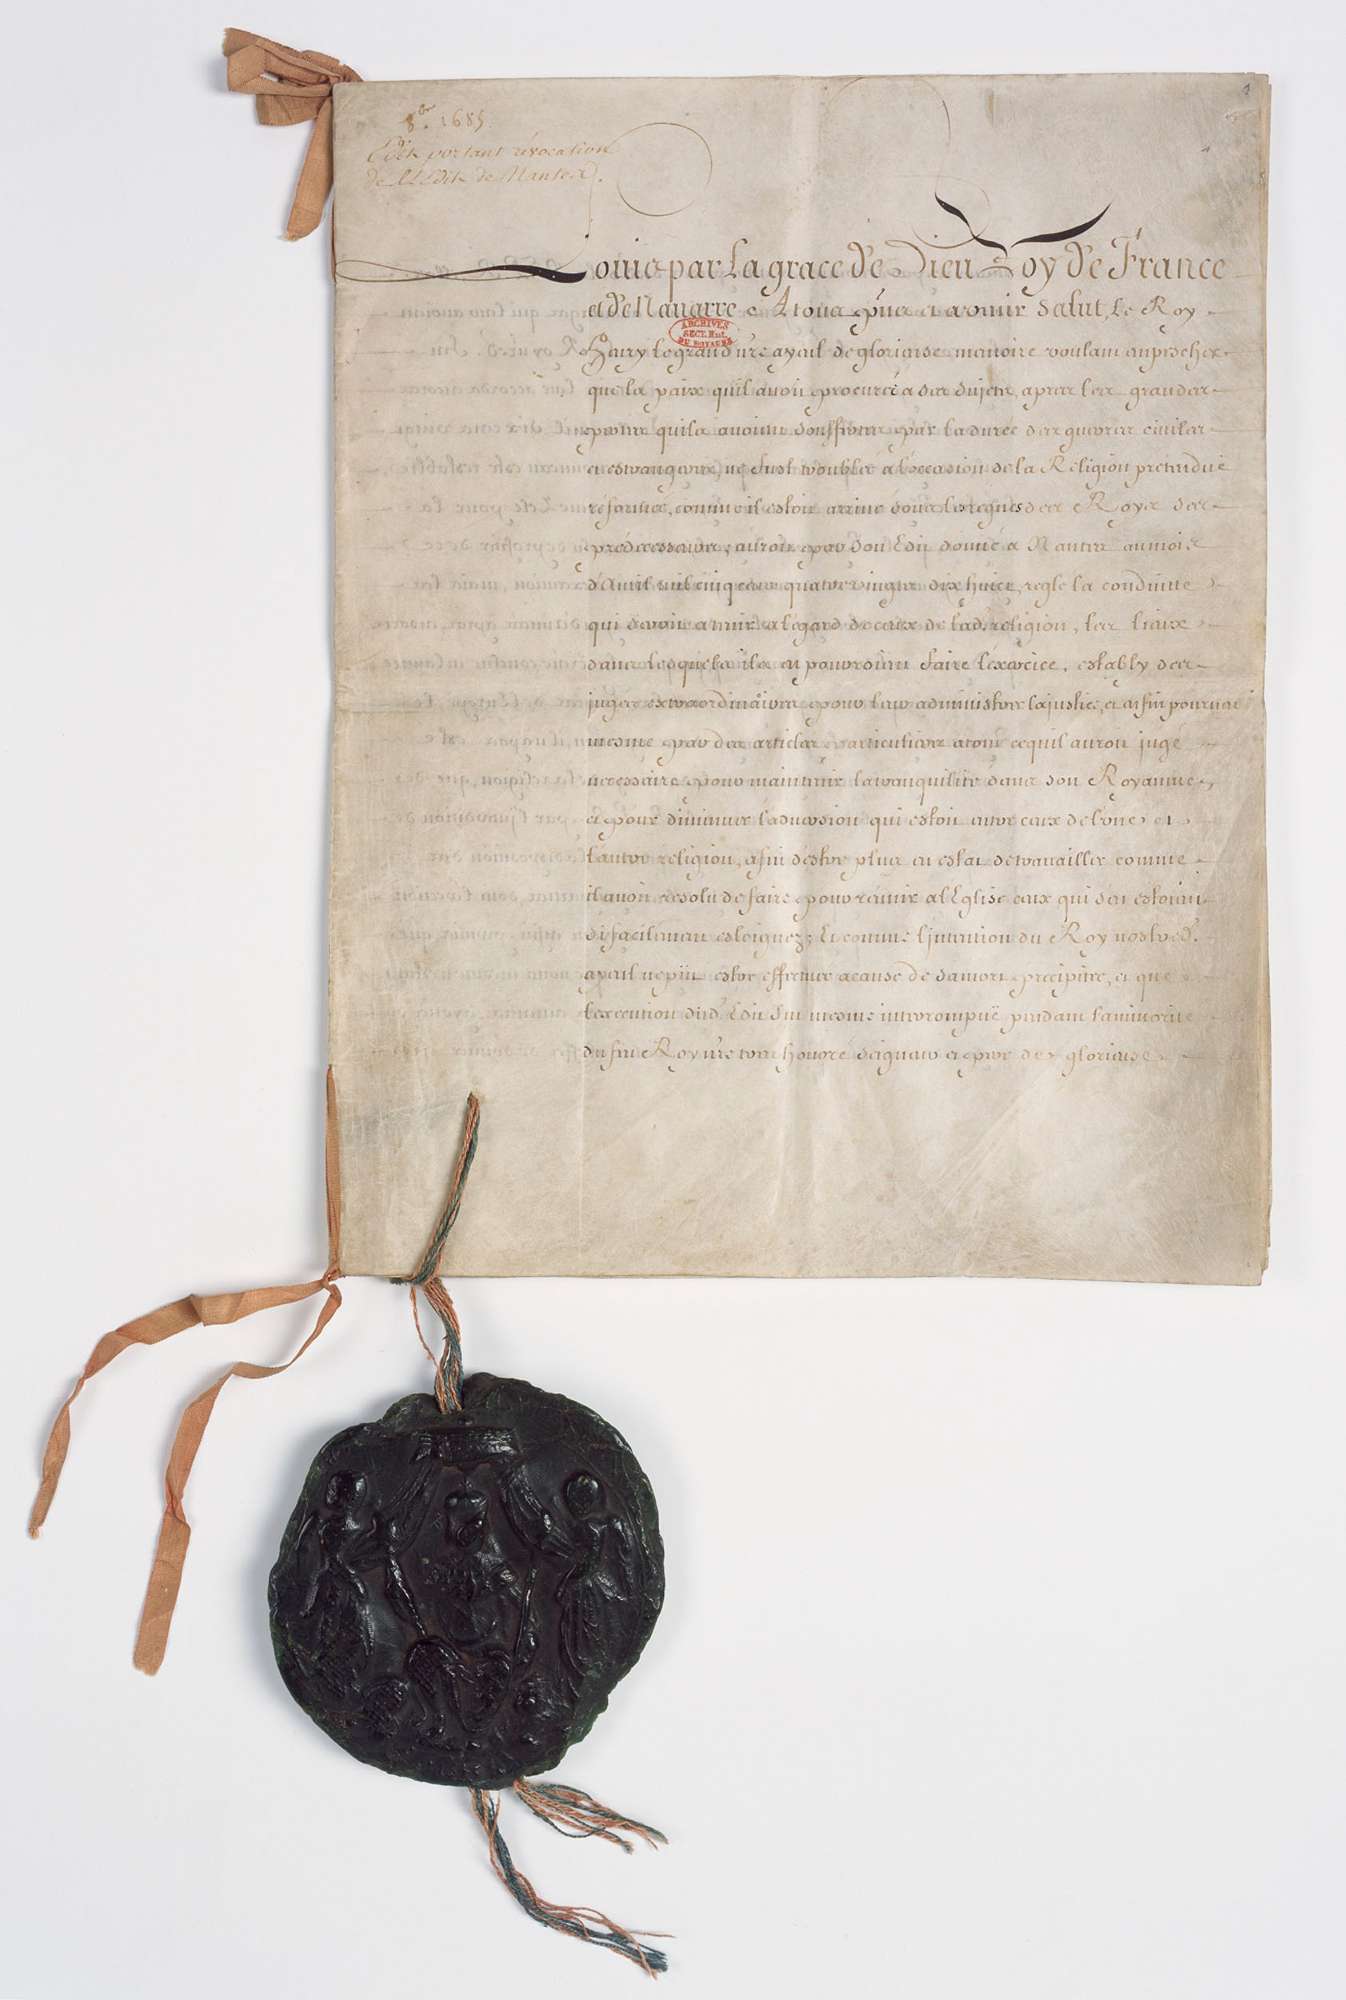 8bre 1685
Edit portant révocation
de l'Edit de Nantes.
Louis par la grace de Dieu Roy de France
et de Navarre A tous p̃ns et avenir salut, Le Roy
ARCHIVES
SECT. HIST.
DU ROYAUME
Henry le grand n̄re ayeul de glorieuse memoire voulant empescher
que la paix quil avoit procurée a ses sujets, apres les grandes
pertes quils avoient souffertes par la durée des guerres civiles
et estrangeres, ne fust troublée a l'occasion de la Religion pretendue
réformée, comme il estoit arrivé sous les regnes des Roys ses
predecesseurs, auroit par son Edit donné a Nantes au mois
d'Avril mil cinq cens quatre vingts dix huict, reglé la conduitte
qui devoit a tenir a l'égard de ceux de lad. religion, les lieux
dans lesquels ils en pourroient faire l'éxercice, estably des
juges extraordinaires pour leur administrer la justice, et enfin pourveu
mesme par des articles particuliers a tout ce quil auroit jugé
necessaire pour maintenir la tranquilité dans son Royaume,
et pour diminuer l'aversion qui estoit entre ceux de l'une et
l'autre religion, afin d'estre plus en estat de travailler comme
il avoit resolu de faire pour réunir a l'Eglise ceux qui s'en estoient
si facilement esloignez; Et comme l'jntention du Roy nostred.
ayeul ne pût estre effectuée a cause de sa mort précipitée, et que
l'execution dud. Edit fut mesme interrompuë pendant la minorité
du feu Roy n̄re tres honoré seigneur et pere de glorieuse